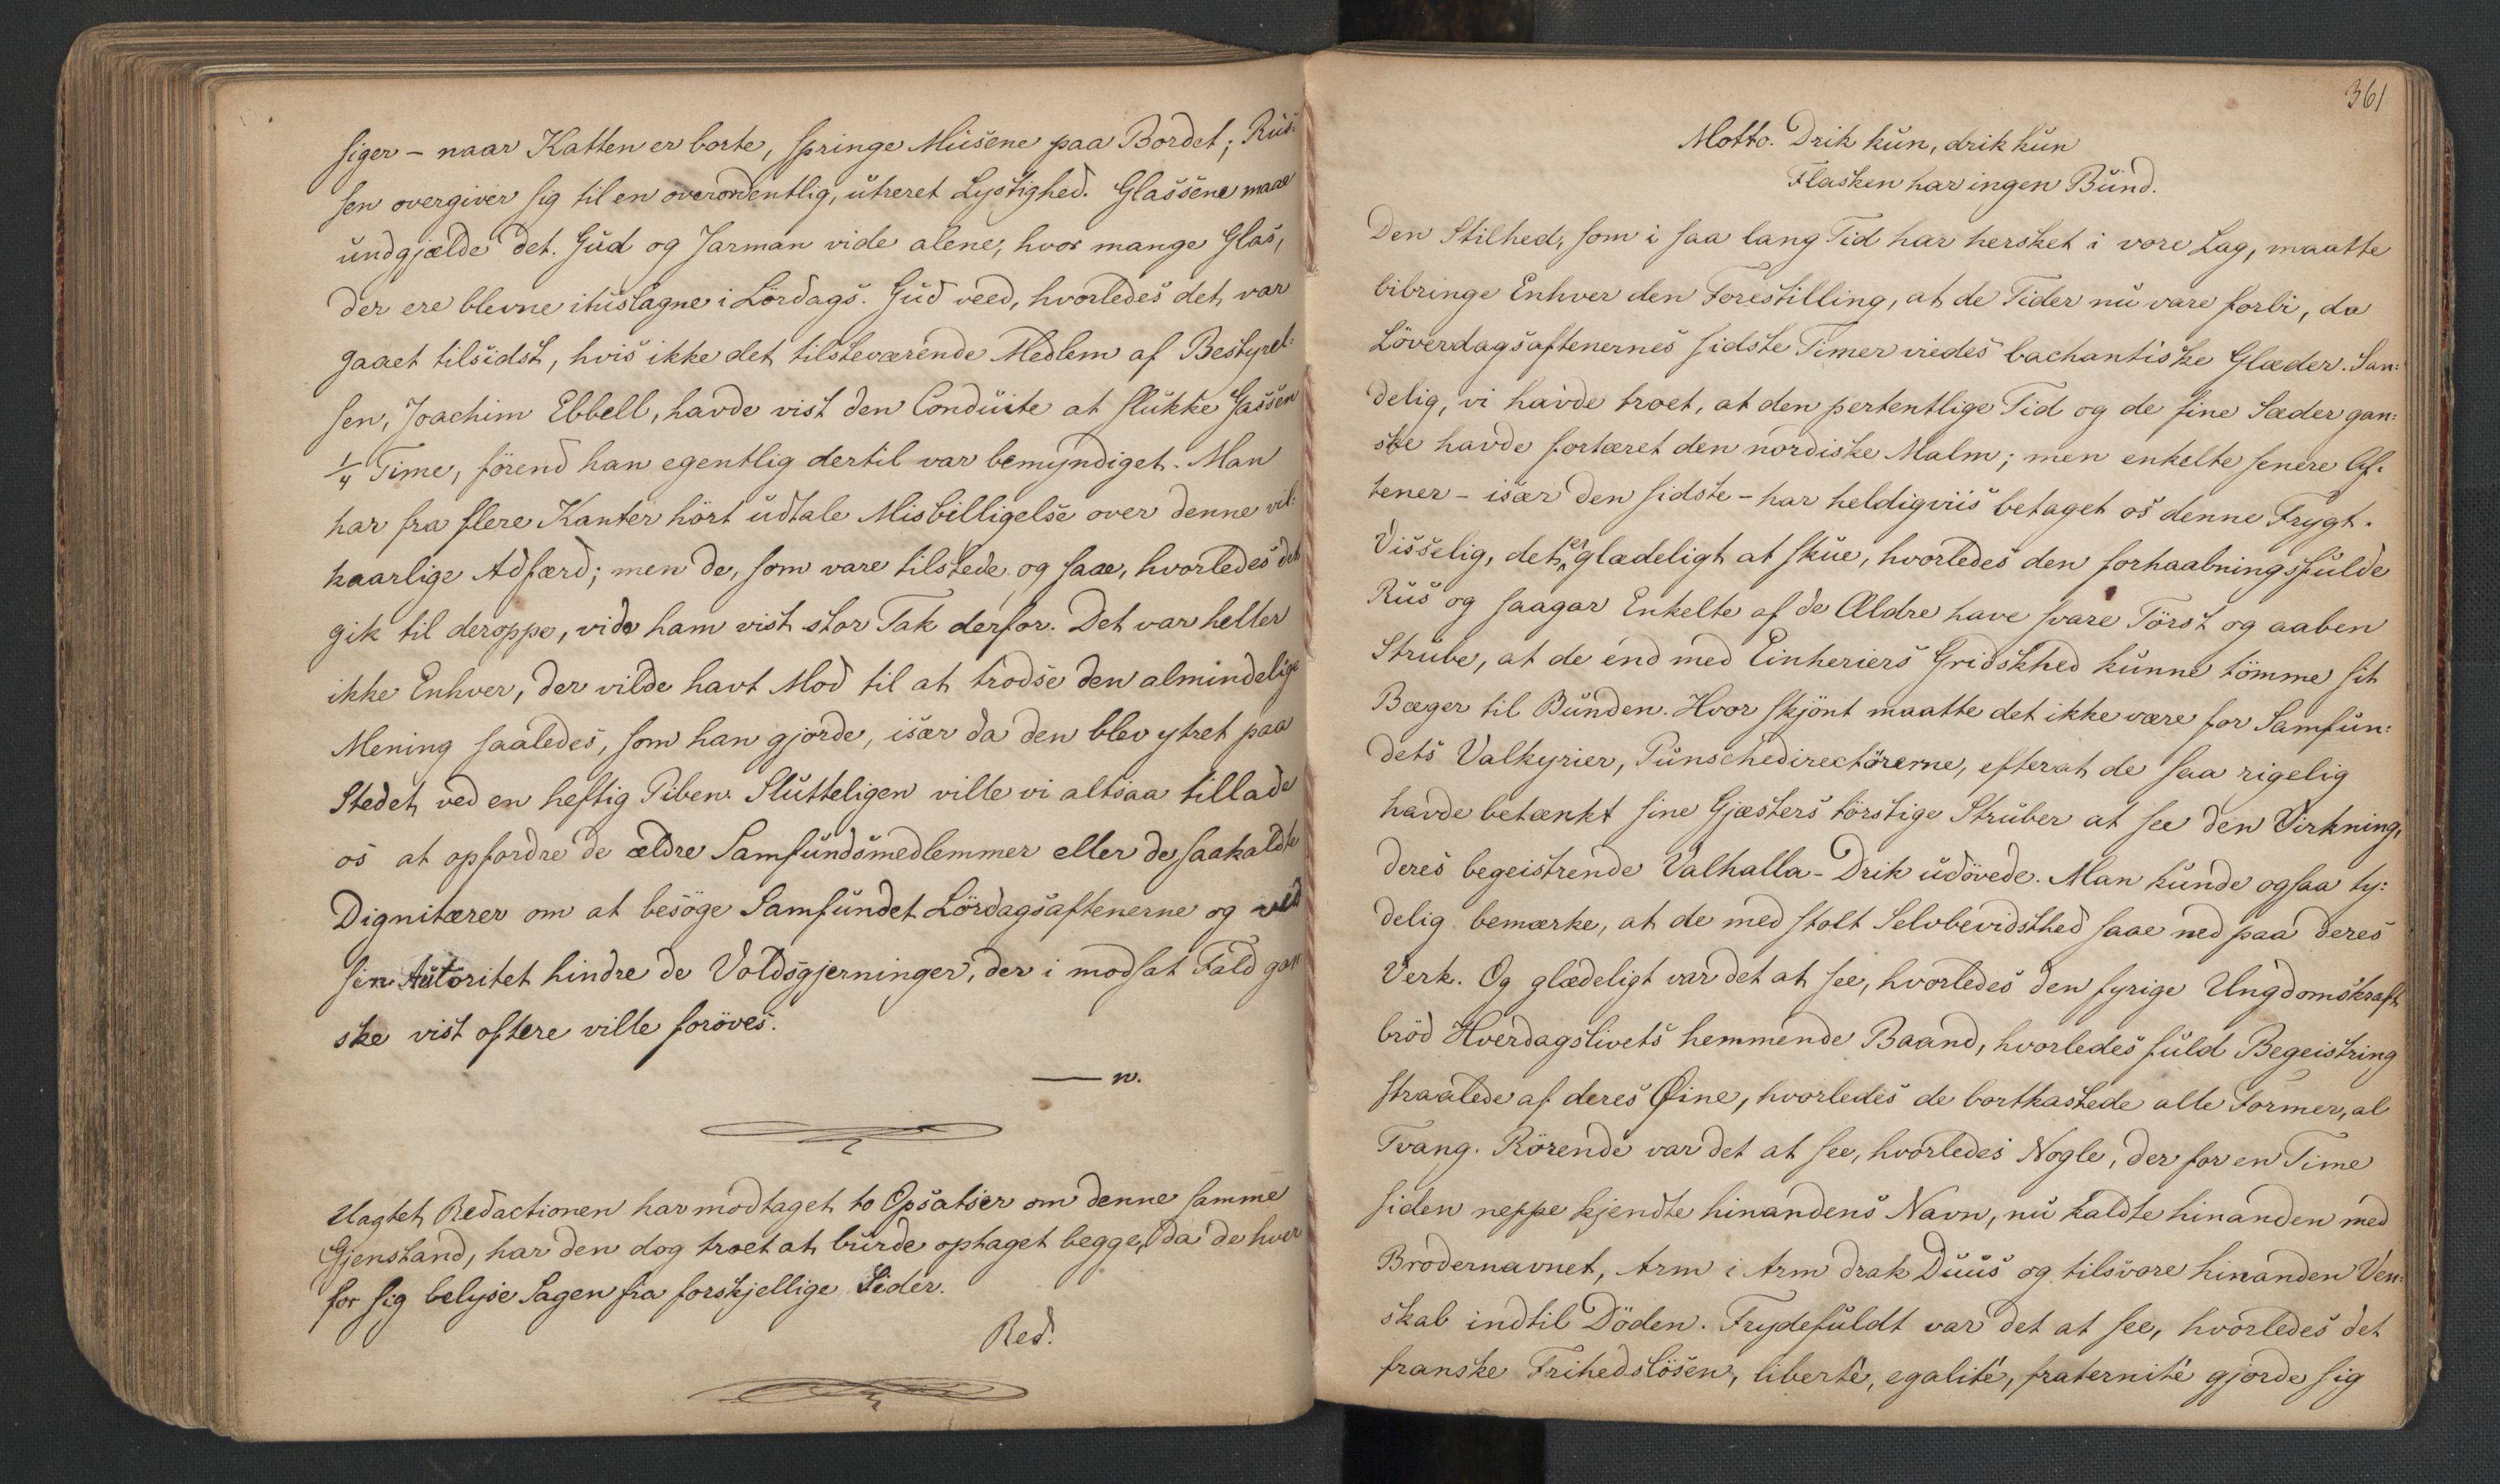 siger – naar Katten er borte, springe Musene paa Bordet; Rus:
sen overgiver sig til en overordentlig, utreret Lystighed. Glassene maae
undgjælde det. Gud og Jarman vide alene, hvor mange Glas,
der ere blevne ituslagne i Lördags. Gud veed, hvorledes det var
gaaet tilsidst, hvis ikke det tilsteværende Medlem af Bestyrel:
sen, Joachim Ebbell, havde vist den Conduite at slukke Gassen
1/4 Time, förend han egentlig dertil var bemyndiget. Man
har fra flere Kanter hört udtale Misbilligelse over denne vil:
kaarlige Adfærd; men de, som vare tilstede og saae, hvorledes det
gik til deroppe, vide ham vist stor Tak derfor. Det var heller
ikke Enhver, der vilde havt Mod til at trodse den almindelige
Mening saaledes, som han gjorde, især da den blev ytret paa
Stedet ved en heftig Piben. Slutteligen ville vi altsaa tillade
os at opfordre de ældre Samfundsmedlemmer eller de saakaldte
Dignitærer om at besöge Samfundet Lördagsaftenerne og ved
sin Autoritet hindre de Voldsgjerninger, der i modsat Fald gan
ske vist oftere ville foröves.
— n.
Uagtet Redactionen har modtaget to Opsatser om denne samme
Gjenstand, har den dog troet at burde optaget begge, da de hver
for sig belyse Sagen fra forskjellige Sider.
Red.
361
Motto. Drik kun, drik kun
Flasken har ingen Bund.
Den Stilhed, som i saa lang Tid har hersket i vore Lag, maatte
bibringe Enhver den Forestilling, at de Tider nu vare forbi, da
Löverdagsaftenernes sidste Timer viedes bachantiske Glæder. San:
delig, vi havde troet, at den pertentlige Tid og de fine Sæder gan:
ske havde fortæret den nordiske Malm; men enkelte senere Af:
tener – især den sidste – har heldigviis betaget os denne Frygt.
Visselig, det er glædeligt at skue, hvorledes den forhaabningsfulde
Rus og saagar Enkelte af de Ældre have svare Törst og aaben
Strube, at de end med Einheriers Gridskhed kunne tömme sit
Bæger til Bunden. Hvor skjönt maatte det ikke være for Samfun:
dets Valkyrier, Punschedirectörerne, efterat de saa rigelig
havde betænkt sine Gjæsters törstige Struber at see den Virkning,
deres begeistrende Valhalla-Drik udövede. Man kunde ogsaa ty:
delig bemærke, at de med stolt Selvbevidsthed saae ned paa deres
Verk. Og glædeligt var det at see, hvorledes den fyrige Ungdomskraft
bröd Hverdagslivets hemmende Baand, hvorledes fuld Begeistring
straalede af deres Øine, hvorledes de bortkastede alle Former, al
Tvang. Rörende var det at see, hvorledes Nogle, der for en Time
siden neppe kjendte hinandens Navn, nu kaldte hinanden med
Brodernavnet, Arm i Arm drak Duus og tilsvore hinanden Ven:
skab indtil Döden. Frydefuldt var det at see, hvorledes det
franske Frihedslösen, liberté, egalité, fraternité gjorde sig